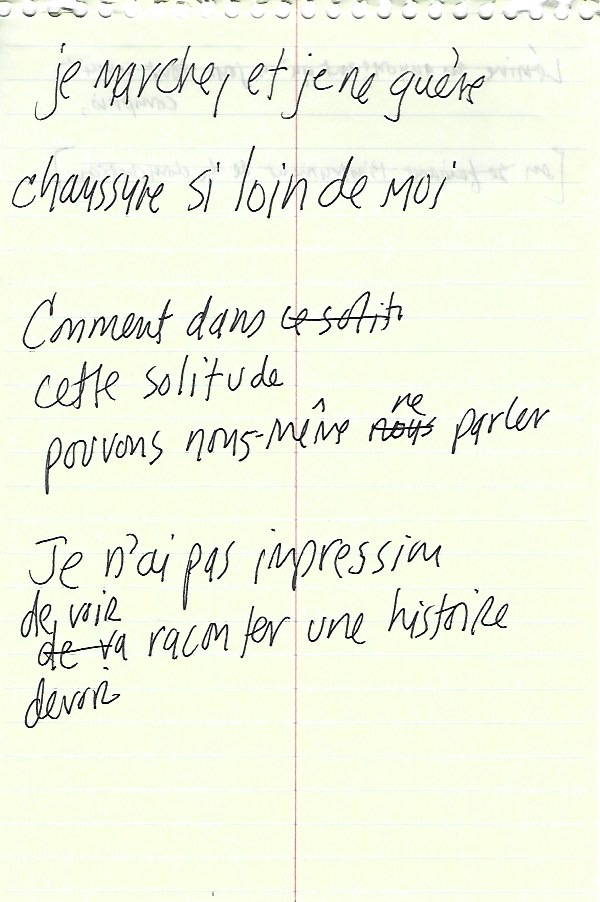 je marche, et je ne guère
chaussure si loin de moi
Comment dans ce soliti
cette solitude
pouvons nous-même nous ne parler
Je n'ai pas impression
de, voir
de va raconter une histoire
devoir